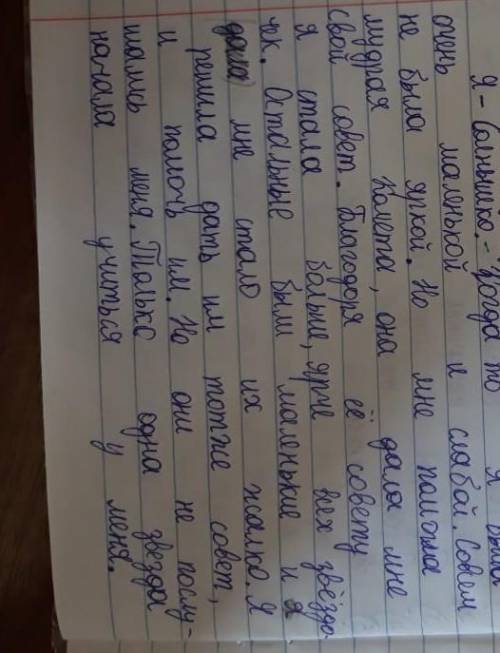 Я - Солнышко. - Когда то я была
очень маленькой и слабой. Совсем
не была яркой. Но мне помогла
мудрая Комета, она дала мне
свой совет. Благодоря её совету
я стала больше, ярче всех звёздо-
чк. Остальные были маленькие и
дала мне стало их жалко. Я
решила дать им тотже совет,
и помочь им. Но они не послу-
шались меня. Только одна звезда
начала учиться у меня.